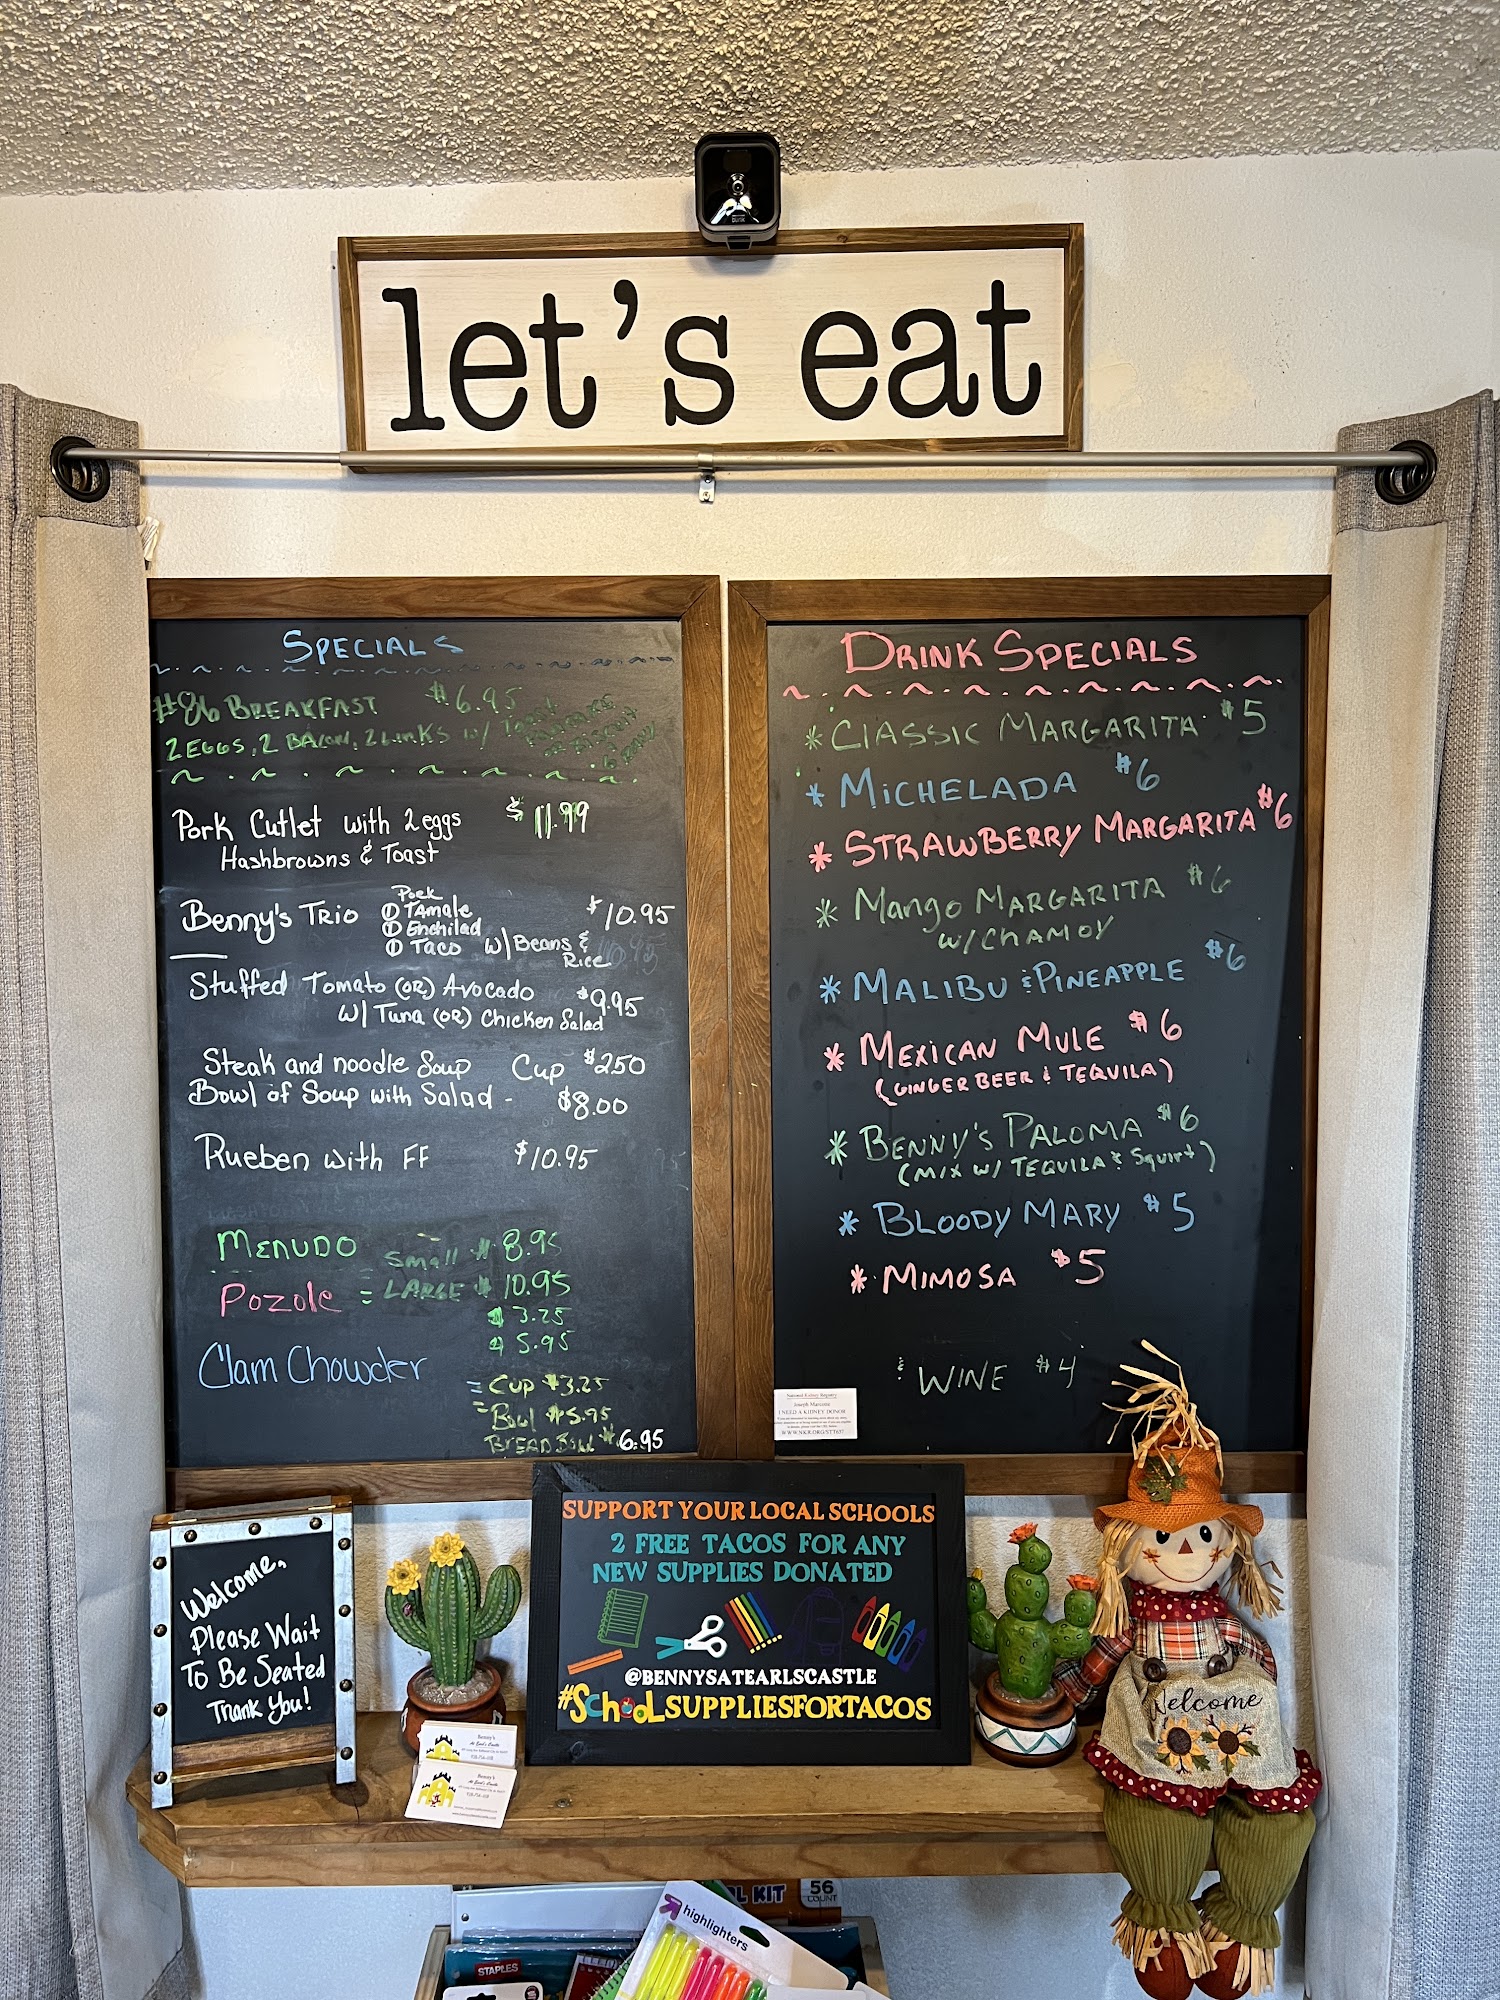 blink
let's eat
SPECIALS
#86 BREAKFAST $6.95
2 EGGS, 2 BACON, 2 LINKS W/ TOAST
PANCAKE
OR BISCUIT
& GRAVY
Pork Cutlet with 2 eggs $11.99
Hashbrowns & Toast
Benny's TRIO Pork $10.95
① TAMALE
① Enchilad
① TACO W/ Beans &
Rice
Stuffed Tomato (OR) Avocado $9.95
W/ Tuna (OR) Chicken Salad
Steak and noodle Soup Cup $250
Bowl of Soup with Salad - $8.00
Rueben with FF $10.95
MENUDO Small $ 8.95
Pozole = LARGE $ 10.95
$ 3.25
$ 5.95
Clam Chowder
= CUP $3.25
= Bowl $5.95
BREAD BOWL $6.95
DRINK SPECIALS
* CLASSIC MARGARITA $5
* MICHELADA $6
* STRAWBERRY MARGARITA $6
* Mango MARGARITA $6
W/ CHAMOY
* MALIBU & PINEAPPLE $6
* MEXICAN MULE $6
(GINGER BEER & TEQUILA)
* BENNY'S PALOMA $6
(MIX W/ TEQUILA & Squirt)
* BLOODY MARY $5
* MIMOSA $5
& WINE $4
National Kidney Registry
I NEED A KIDNEY DONOR
Welcome,
Please Wait
To Be Seated
Thank You!
SUPPORT YOUR LOCAL SCHOOLS
2 FREE TACOS FOR ANY
NEW SUPPLIES DONATED
@BENNYSATEARLSCASTLE
#SchooLSUPPLIESFORTACOS
Benny's
At Earl's Castle
Benny's
At Earl's Castle
Welcome
KIT
56
COUNT
highlighters
STAPLES